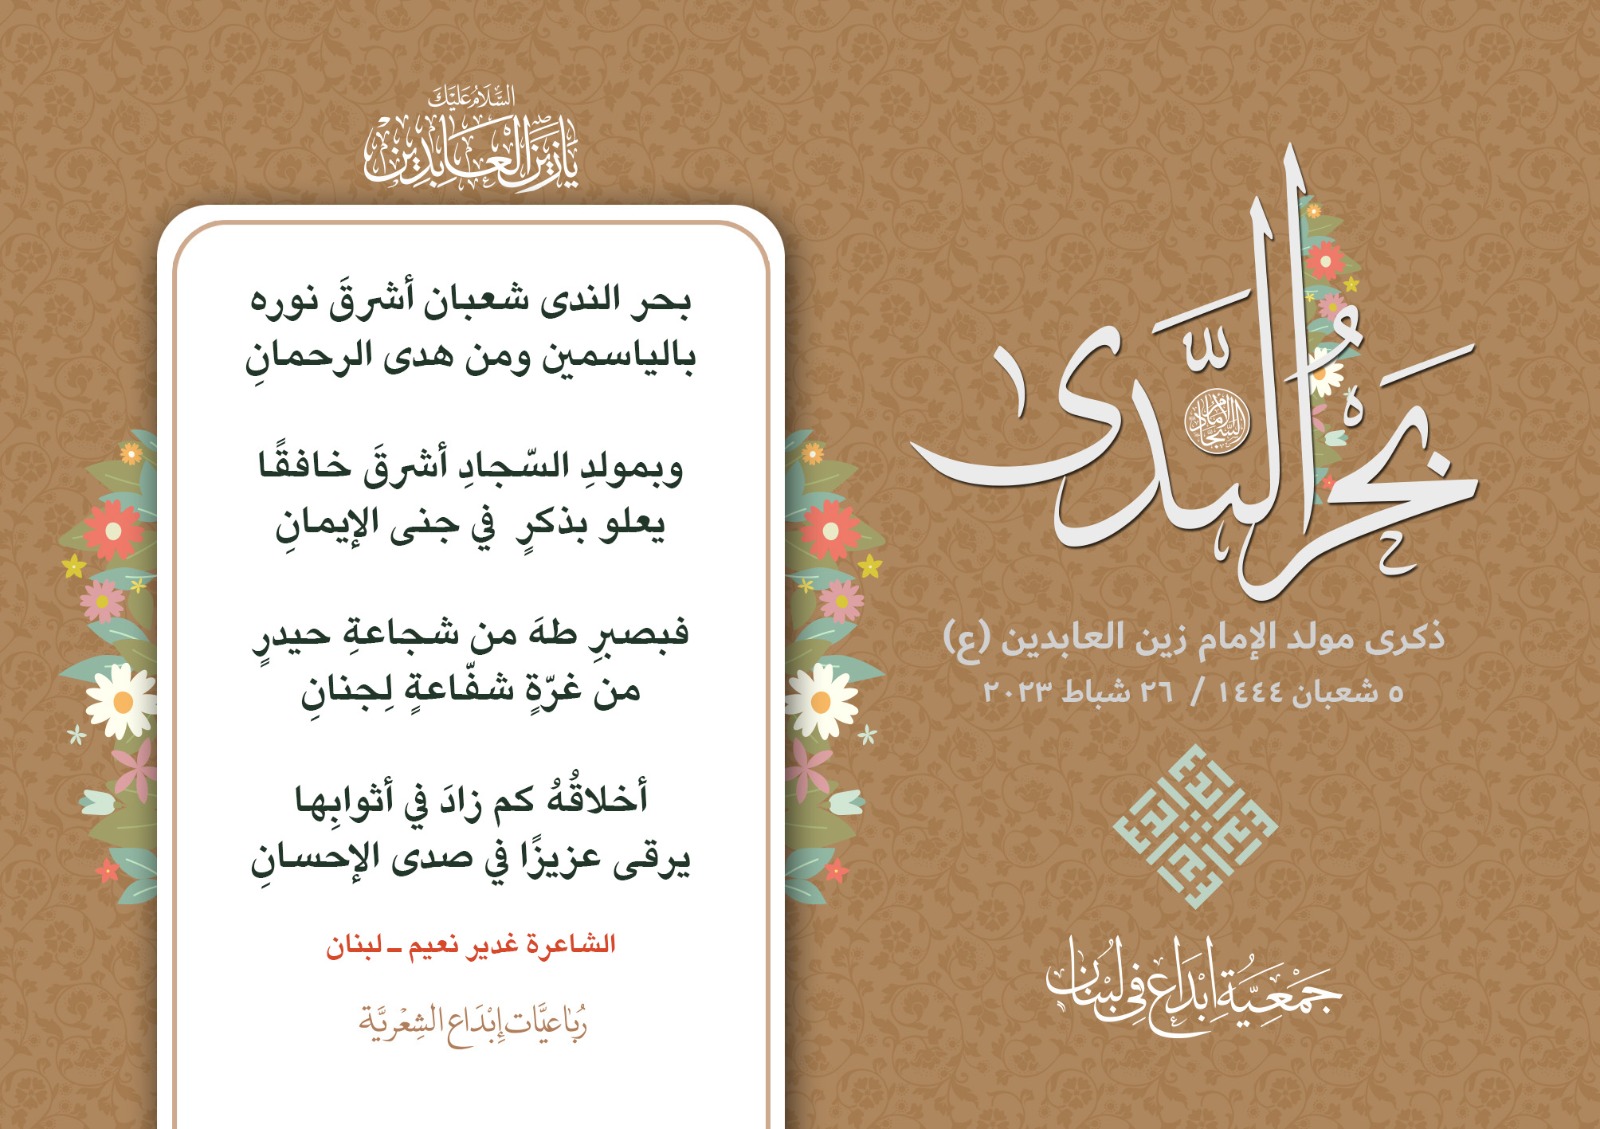 بحر الندى
الإمام السجاد
ذكرى مولد الإمام زين العابدين (ع)
٥ شعبان ١٤٤٤ / ٢٦ شباط ٢٠٢٣
إبداع إبداع إبداع إبداع
جَمْعِيَّة إبْدَاع فِي لُبْنان
السَّلَامُ عَلَيْكَ
يَا زَيْنَ الْعَابِدِين
بحر الندى شعبان أشرقَ نوره
بالياسمين ومن هدى الرحمانِ
وبمولدِ السّجادِ أشرقَ خافقًا
يعلو بذكرٍ في جنى الإيمانِ
فبصبرِ طهَ من شجاعةِ حيدرٍ
من غرّةٍ شفّاعةٍ لِجنانِ
أخلاقُهُ كم زادَ في أثوابِها
يرقى عزيزًا في صدى الإحسانِ
الشاعرة غدير نعيم ـ لبنان
رُبَاعيَّات إبْدَاع الشِعْريَّة